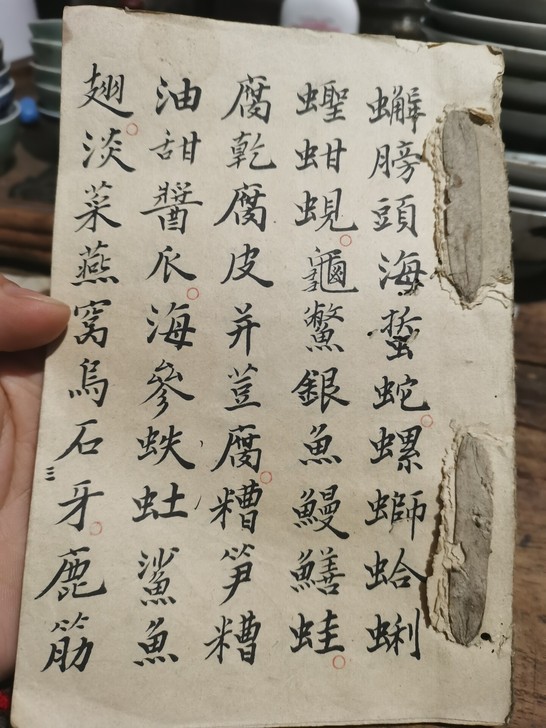 蠏膀頭海蜇蛇螺螄蛤蜊
蟶蚶蜆龜鱉銀魚鰻鱔蛙
腐乾腐皮并荳腐糟笋糟
油甜醬瓜海參蛈鯊魚
翅淡菜燕窩烏石牙鹿筋